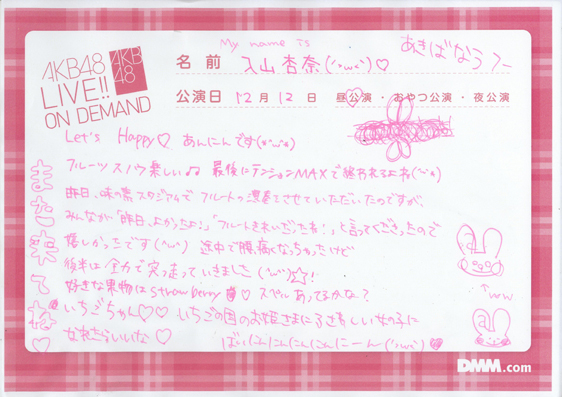 AKB48
LIVE!!
ON DEMAND
AKB
48
My name is
名前 入山杏奈('ω')♡
あきばなう
公演日 12月12日 昼公演・おやつ公演・夜公演
Let's Happy♡ あんにんです
フルーツスノウ楽しい♪♪ 最後にテンションMAXで終われるよね
昨日、味の素スタジアムで フルートの演奏をさせていただいたのですが、
みんなが「昨日、よかったよ!」「フルートきれいだったね!」と言ってくださったので
嬉しかったです(^ω^) 途中で腹、痛くなっちゃったけど
後半は全力で突っ走っていきました(^ω^)☆!
好きな果物はstrawberry♡ スペルあってるかな?
いちごちゃん♡♡ いちごの国のお姫さまになる 女の子に
なれたらいいな♡ ばいにんにんにんにんにーん
また来てね♡
now
DMM.com